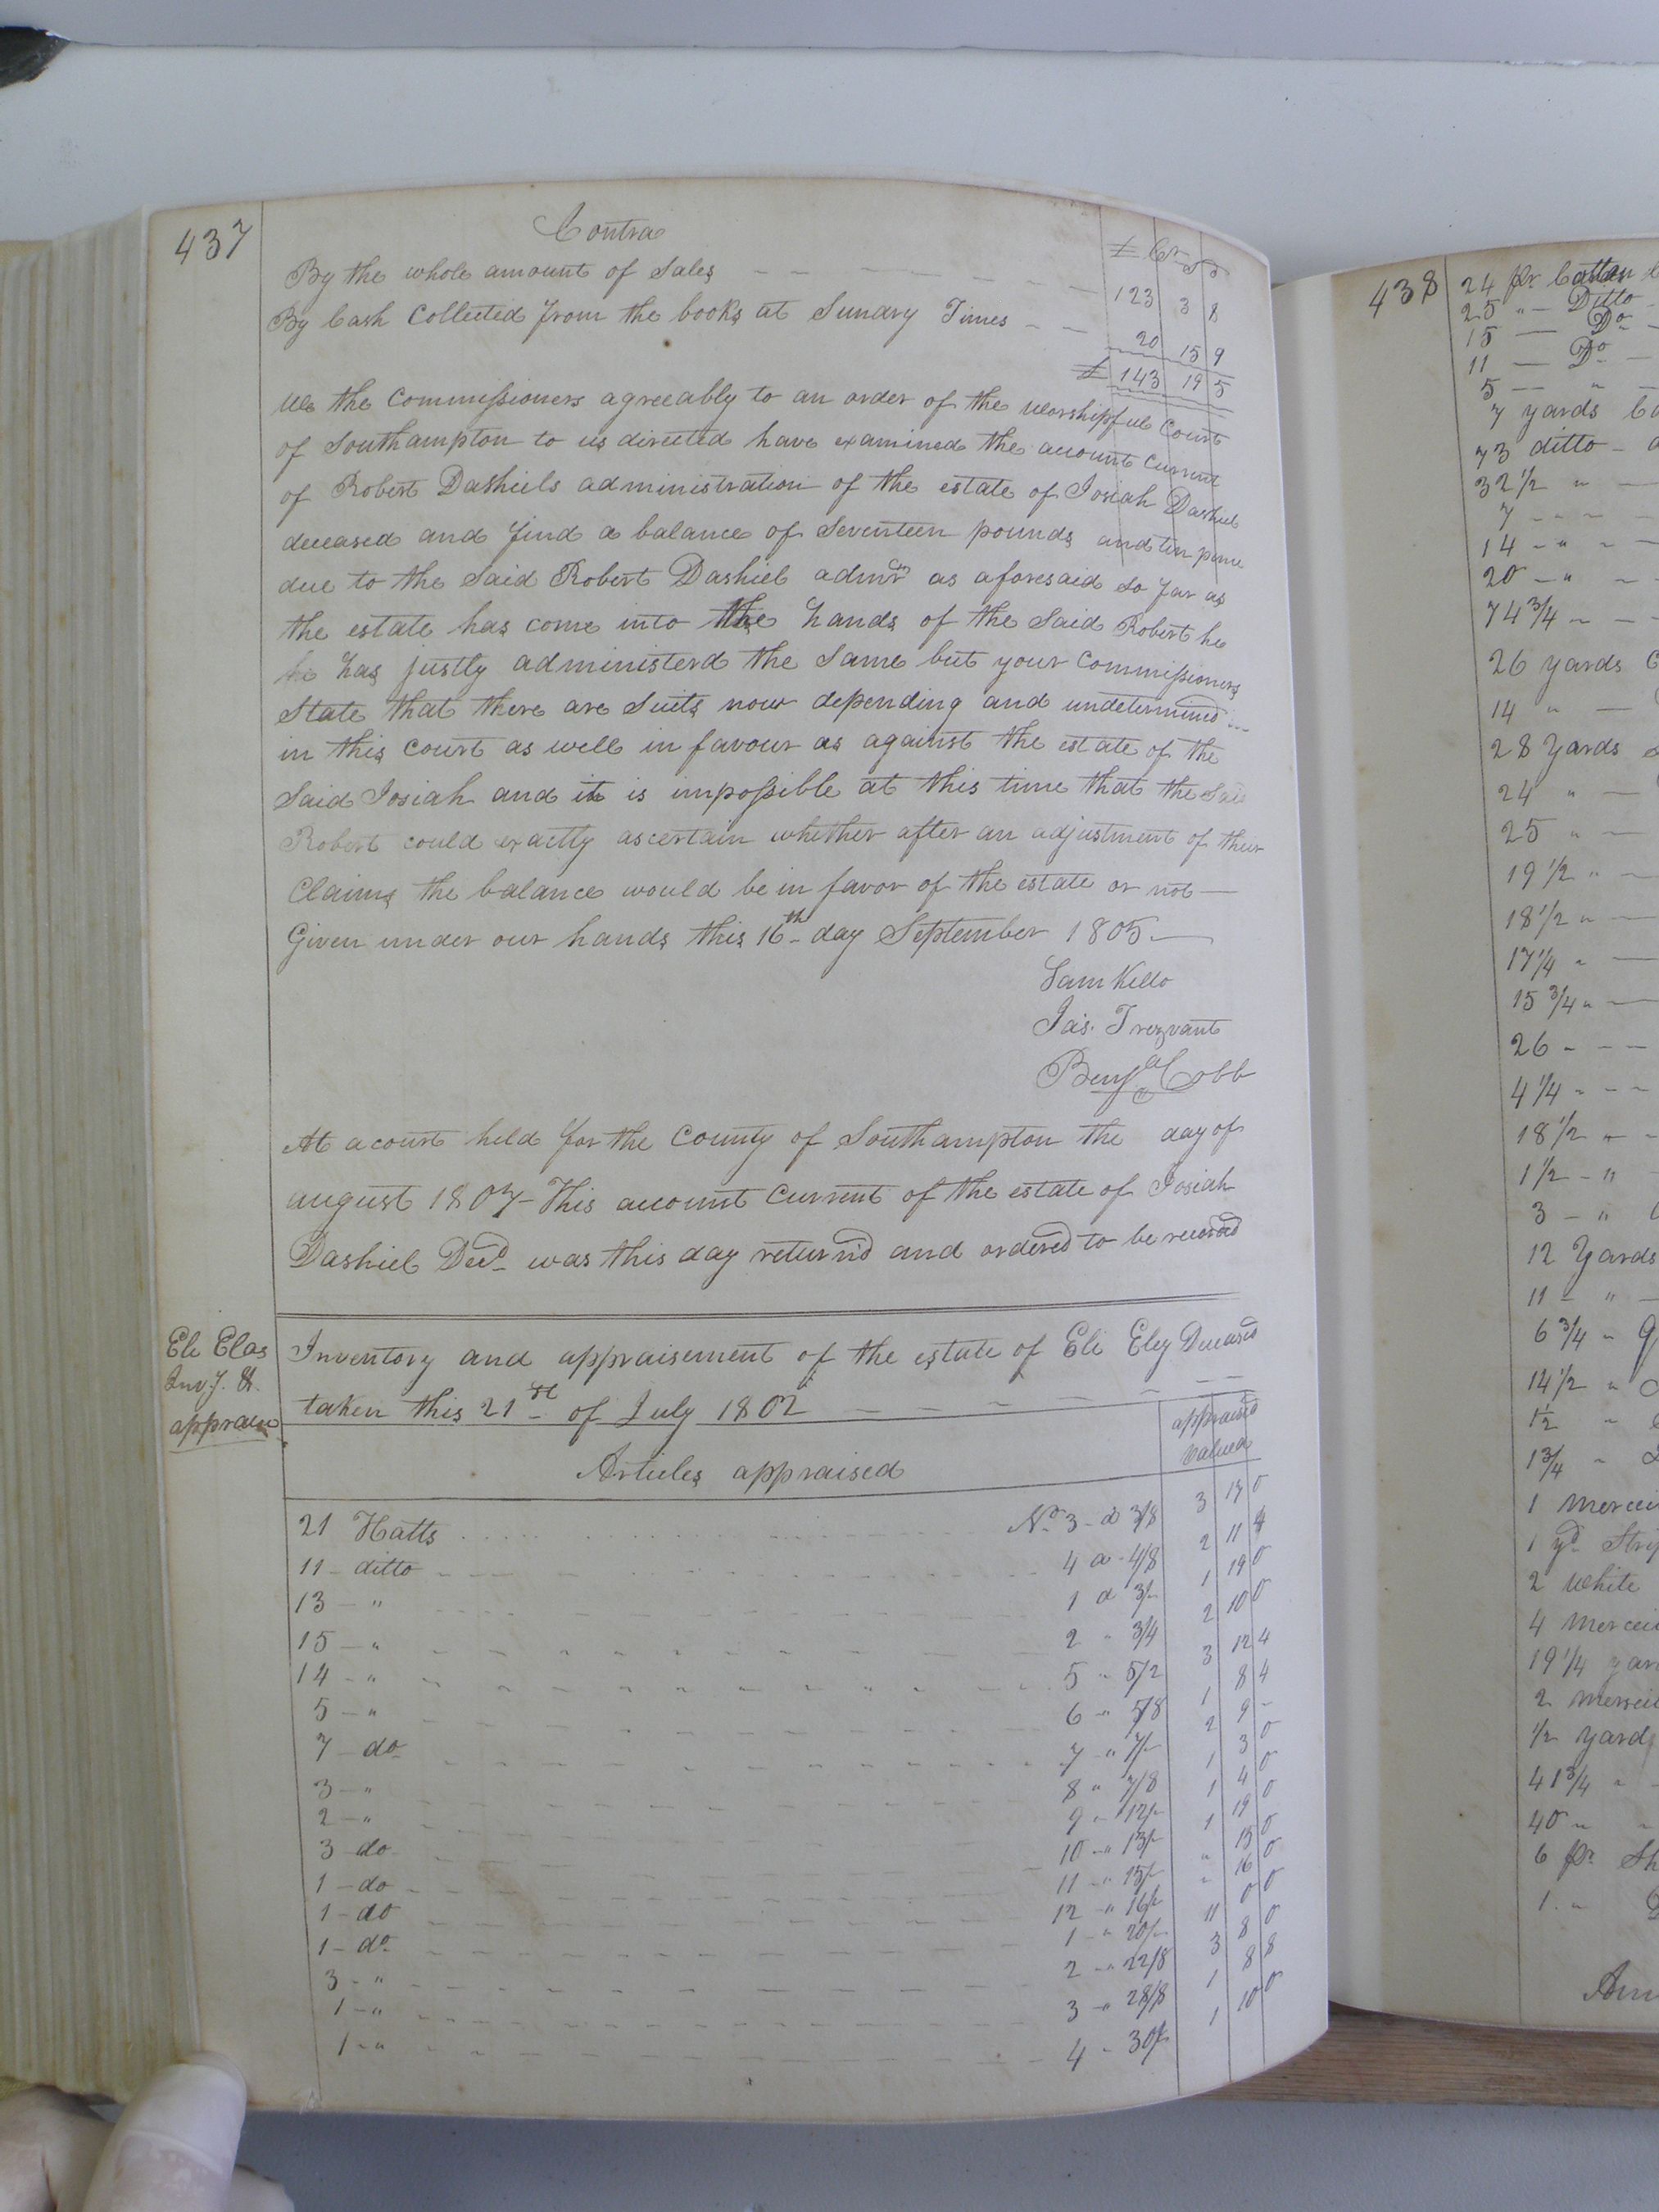 437
Contra £ Cr S D
By the whole amount of Sales 123 3 8
By Cash Collected from the books at Sundry Times 20 15 9
£ 143 19 5
We the Commissioners agreeably to an order of the Worshipful Court
of Southampton to us directed have examined the account Current
of Robert Dashiels administration of the estate of Josiah Dashiel
deceased and find a balance of Seventeen pounds and ten pence
due to the Said Robert Dashiel admr as aforesaid so far as
the estate has come into the hands of the Said Robert he
he has justly administerd the Same but your Commissioners
State that there are Suits now depending and undetermined
in this Court as well in favour as against the estate of the
Said Josiah and it is impossible at this time that the Said
Robert could exactly ascertain whether after an adjustment of their
Claims the balance would be in favor of the estate or not —
Given under our hands this 16th day September 1805 —
Sam Kello
Jas. Trezvant
Benja Cobb
At a court held for the County of Southampton the day of
august 1807 - This account Current of the estate of Josiah
Dashiel Decd was this day returnd and ordered to be recorded
Eli Eleas
Invy. &
appraism
Inventory and appraisement of the estate of Eli Eley Deceased
taken this 21st of July 1802
Articles appraised appraised Valued
21 Hatts No 3 - a 3/8 3 17 0
11 - ditto 4 a 4/8 2 11 4
13 - " 1 a 3/- 1 19 0
15 - " 2 " 3/4 2 10 0
14 - " 5 " 5/2 3 12 4
5 - " 6 " 5/8 1 8 4
7 - do 7 " 7/- 2 9 -
3 - " 8 " 7/8 1 3 0
2 - " 9 " 12/- 1 4 0
3 do 10 " 13/- 1 19 0
1 - do 11 " 15/- " 15 0
1 - do 12 " 16/- " 16 0
1 - do 1 " 20/- 11 0 0
3 - " 2 " 22/8 3 8 0
1 - " 3 " 28/8 1 8 8
1 - " 4 " 30/- 1 10 0
438
24 pr Cotton
25 " Ditto
15 — Do
11 — Do
5 — "
7 yards
73 ditto
32 1/2 "
7 - " -
14 - " -
20 - "
74 3/4 "
26 yards
14 "
28 Yards
24 "
25 "
19 1/2 "
18 1/2 "
17 1/4 "
15 3/4 "
26 -
4 1/4 "
18 1/2 "
1 1/2 - "
3 - "
12 Yards
11 - "
6 3/4 "
14 1/2 "
1/2 "
1 3/4 "
1
1 yd
2 White
4
19 1/4
2
1/2 yard
41 3/4 "
40 "
6 pr
1 "